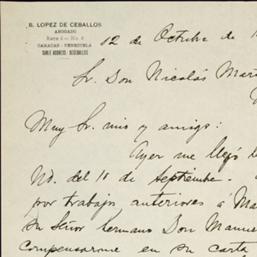 B. LOPEZ DE CEBALLOS
ABOGADO
CARACAS - VENEZUELA
CABLE ADDRESS: DECEBALLOS
12 de Octubre de 1
Sr. Don Nicolás Mar
Muy Sr. mio y amigo:
Ayer me llegó l
Nd. del 18 de septiembre.
por trabajos anteriores á Ma
su Señor hermano Don Manue
compensarme en su carta